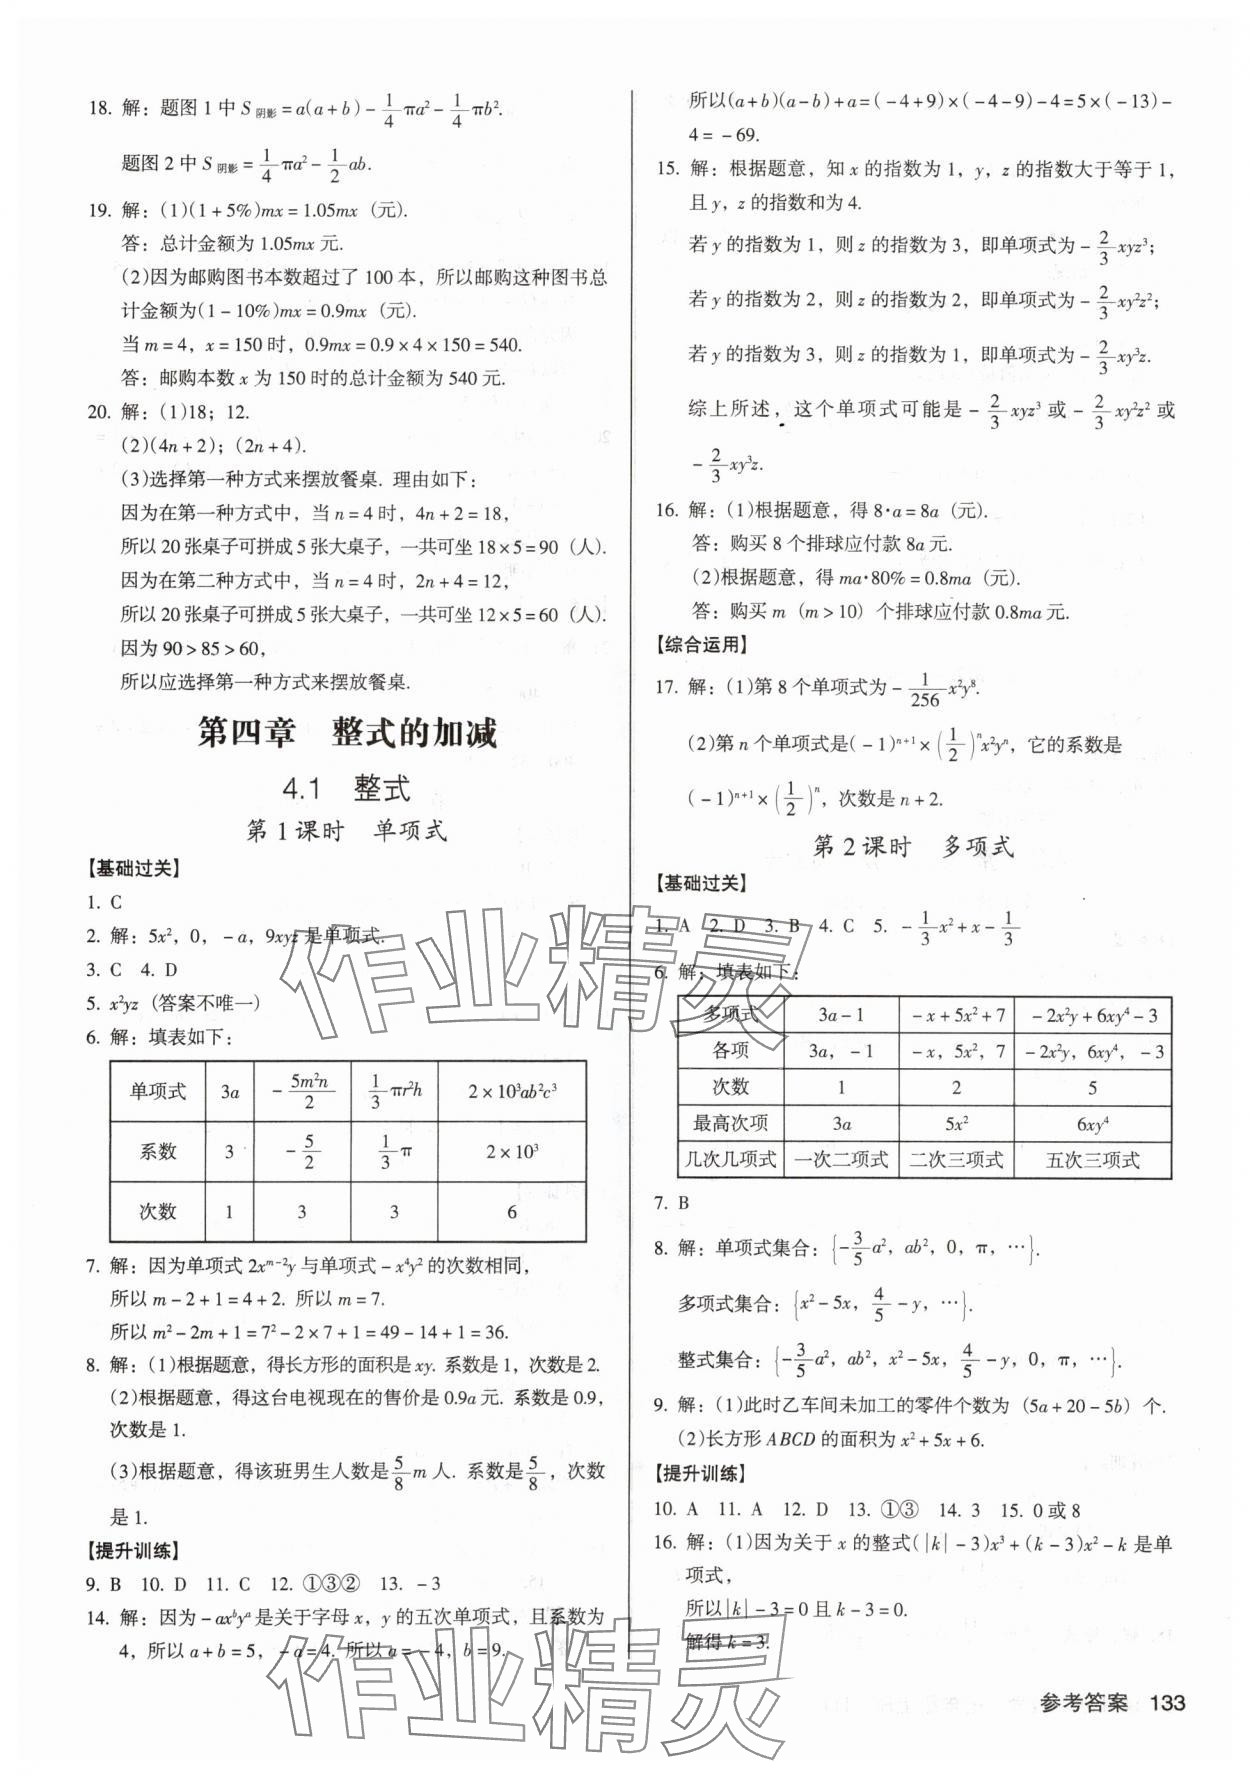 18. 解：题图 1 中 S阴影 = a(a + b) - 1/4 πa² - 1/4 πb².
题图 2 中 S阴影 = 1/4 πa² - 1/2 ab.
19. 解：(1)(1 + 5%)mx = 1.05mx (元).
答：总计金额为 1.05mx 元.
(2)因为邮购图书本数超过了 100 本，所以邮购这种图书总
计金额为(1 - 10%)mx = 0.9mx (元).
当 m = 4，x = 150 时，0.9mx = 0.9 × 4 × 150 = 540.
答：邮购本数 x 为 150 时的总计金额为 540 元.
20. 解：(1)18；12.
(2)(4n + 2)；(2n + 4).
(3)选择第一种方式来摆放餐桌. 理由如下：
因为在第一种方式中，当 n = 4 时，4n + 2 = 18，
所以 20 张桌子可拼成 5 张大桌子，一共可坐 18 × 5 = 90（人）.
因为在第二种方式中，当 n = 4 时，2n + 4 = 12，
所以 20 张桌子可拼成 5 张大桌子，一共可坐 12 × 5 = 60（人）.
因为 90 > 85 > 60，
所以应选择第一种方式来摆放餐桌.
第四章　整式的加减
4.1　整式
第 1 课时　单项式
【基础过关】
1. C
2. 解：5x²，0，- a，9xyz 是单项式.
3. C　4. D
5. x²yz（答案不唯一）
6. 解：填表如下：
单项式　3a　- 5m²n/2　1/3 πr²h　2 × 10³ab²c³
系数　3　- 5/2　1/3 π　2 × 10³
次数　1　3　3　6
7. 解：因为单项式 2xᵐ⁻²y 与单项式 - x⁴y² 的次数相同，
所以 m - 2 + 1 = 4 + 2. 所以 m = 7.
所以 m² - 2m + 1 = 7² - 2 × 7 + 1 = 49 - 14 + 1 = 36.
8. 解：(1)根据题意，得长方形的面积是 xy. 系数是 1，次数是 2.
(2)根据题意，得这台电视现在的售价是 0.9a 元. 系数是 0.9，
次数是 1.
(3)根据题意，得该班男生人数是 5/8 m 人. 系数是 5/8，次数
是 1.
【提升训练】
9. B　10. D　11. C　12. ①③②　13. - 3
14. 解：因为 - axᵇyᵃ 是关于字母 x，y 的五次单项式，且系数为
4，所以 a + b = 5，- a = 4. 所以 a = - 4，b = 9.
所以(a + b)(a - b) + a = (- 4 + 9) × (- 4 - 9) - 4 = 5 × (- 13) -
4 = - 69.
15. 解：根据题意，知 x 的指数为 1，y，z 的指数大于等于 1，
且 y，z 的指数和为 4.
若 y 的指数为 1，则 z 的指数为 3，即单项式为 - 2/3 xyz³；
若 y 的指数为 2，则 z 的指数为 2，即单项式为 - 2/3 xy²z²；
若 y 的指数为 3，则 z 的指数为 1，即单项式为 - 2/3 xy³z.
综上所述，这个单项式可能是 - 2/3 xyz³ 或 - 2/3 xy²z² 或
- 2/3 xy³z.
16. 解：(1)根据题意，得 8·a = 8a (元).
答：购买 8 个排球应付款 8a 元.
(2)根据题意，得 ma·80% = 0.8ma (元).
答：购买 m（m > 10）个排球应付款 0.8ma 元.
【综合运用】
17. 解：(1)第 8 个单项式为 - 1/256 x²y⁸.
(2)第 n 个单项式是(- 1)ⁿ⁺¹ × (1/2)ⁿx²yⁿ，它的系数是
(- 1)ⁿ⁺¹ × (1/2)ⁿ，次数是 n + 2.
第 2 课时　多项式
【基础过关】
1. A　2. D　3. B　4. C　5. - 1/3 x² + x - 1/3
6. 解：填表如下：
多项式　3a - 1　- x + 5x² + 7　- 2x²y + 6xy⁴ - 3
各项　3a，- 1　- x，5x²，7　- 2x²y，6xy⁴，- 3
次数　1　2　5
最高次项　3a　5x²　6xy⁴
几次几项式　一次二项式　二次三项式　五次三项式
7. B
8. 解：单项式集合：{- 3/5 a²，ab²，0，π，…}.
多项式集合：{x² - 5x，4/5 - y，…}.
整式集合：{- 3/5 a²，ab²，x² - 5x，4/5 - y，0，π，…}.
9. 解：(1)此时乙车间未加工的零件个数为（5a + 20 - 5b）个.
(2)长方形 ABCD 的面积为 x² + 5x + 6.
【提升训练】
10. A　11. A　12. D　13. ①③　14. 3　15. 0 或 8
16. 解：(1)因为关于 x 的整式(|k| - 3)x³ + (k - 3)x² - k 是单
项式，
所以|k| - 3 = 0 且 k - 3 = 0.
解得 k = 3.
作业精灵
作业精灵
参考答案　133